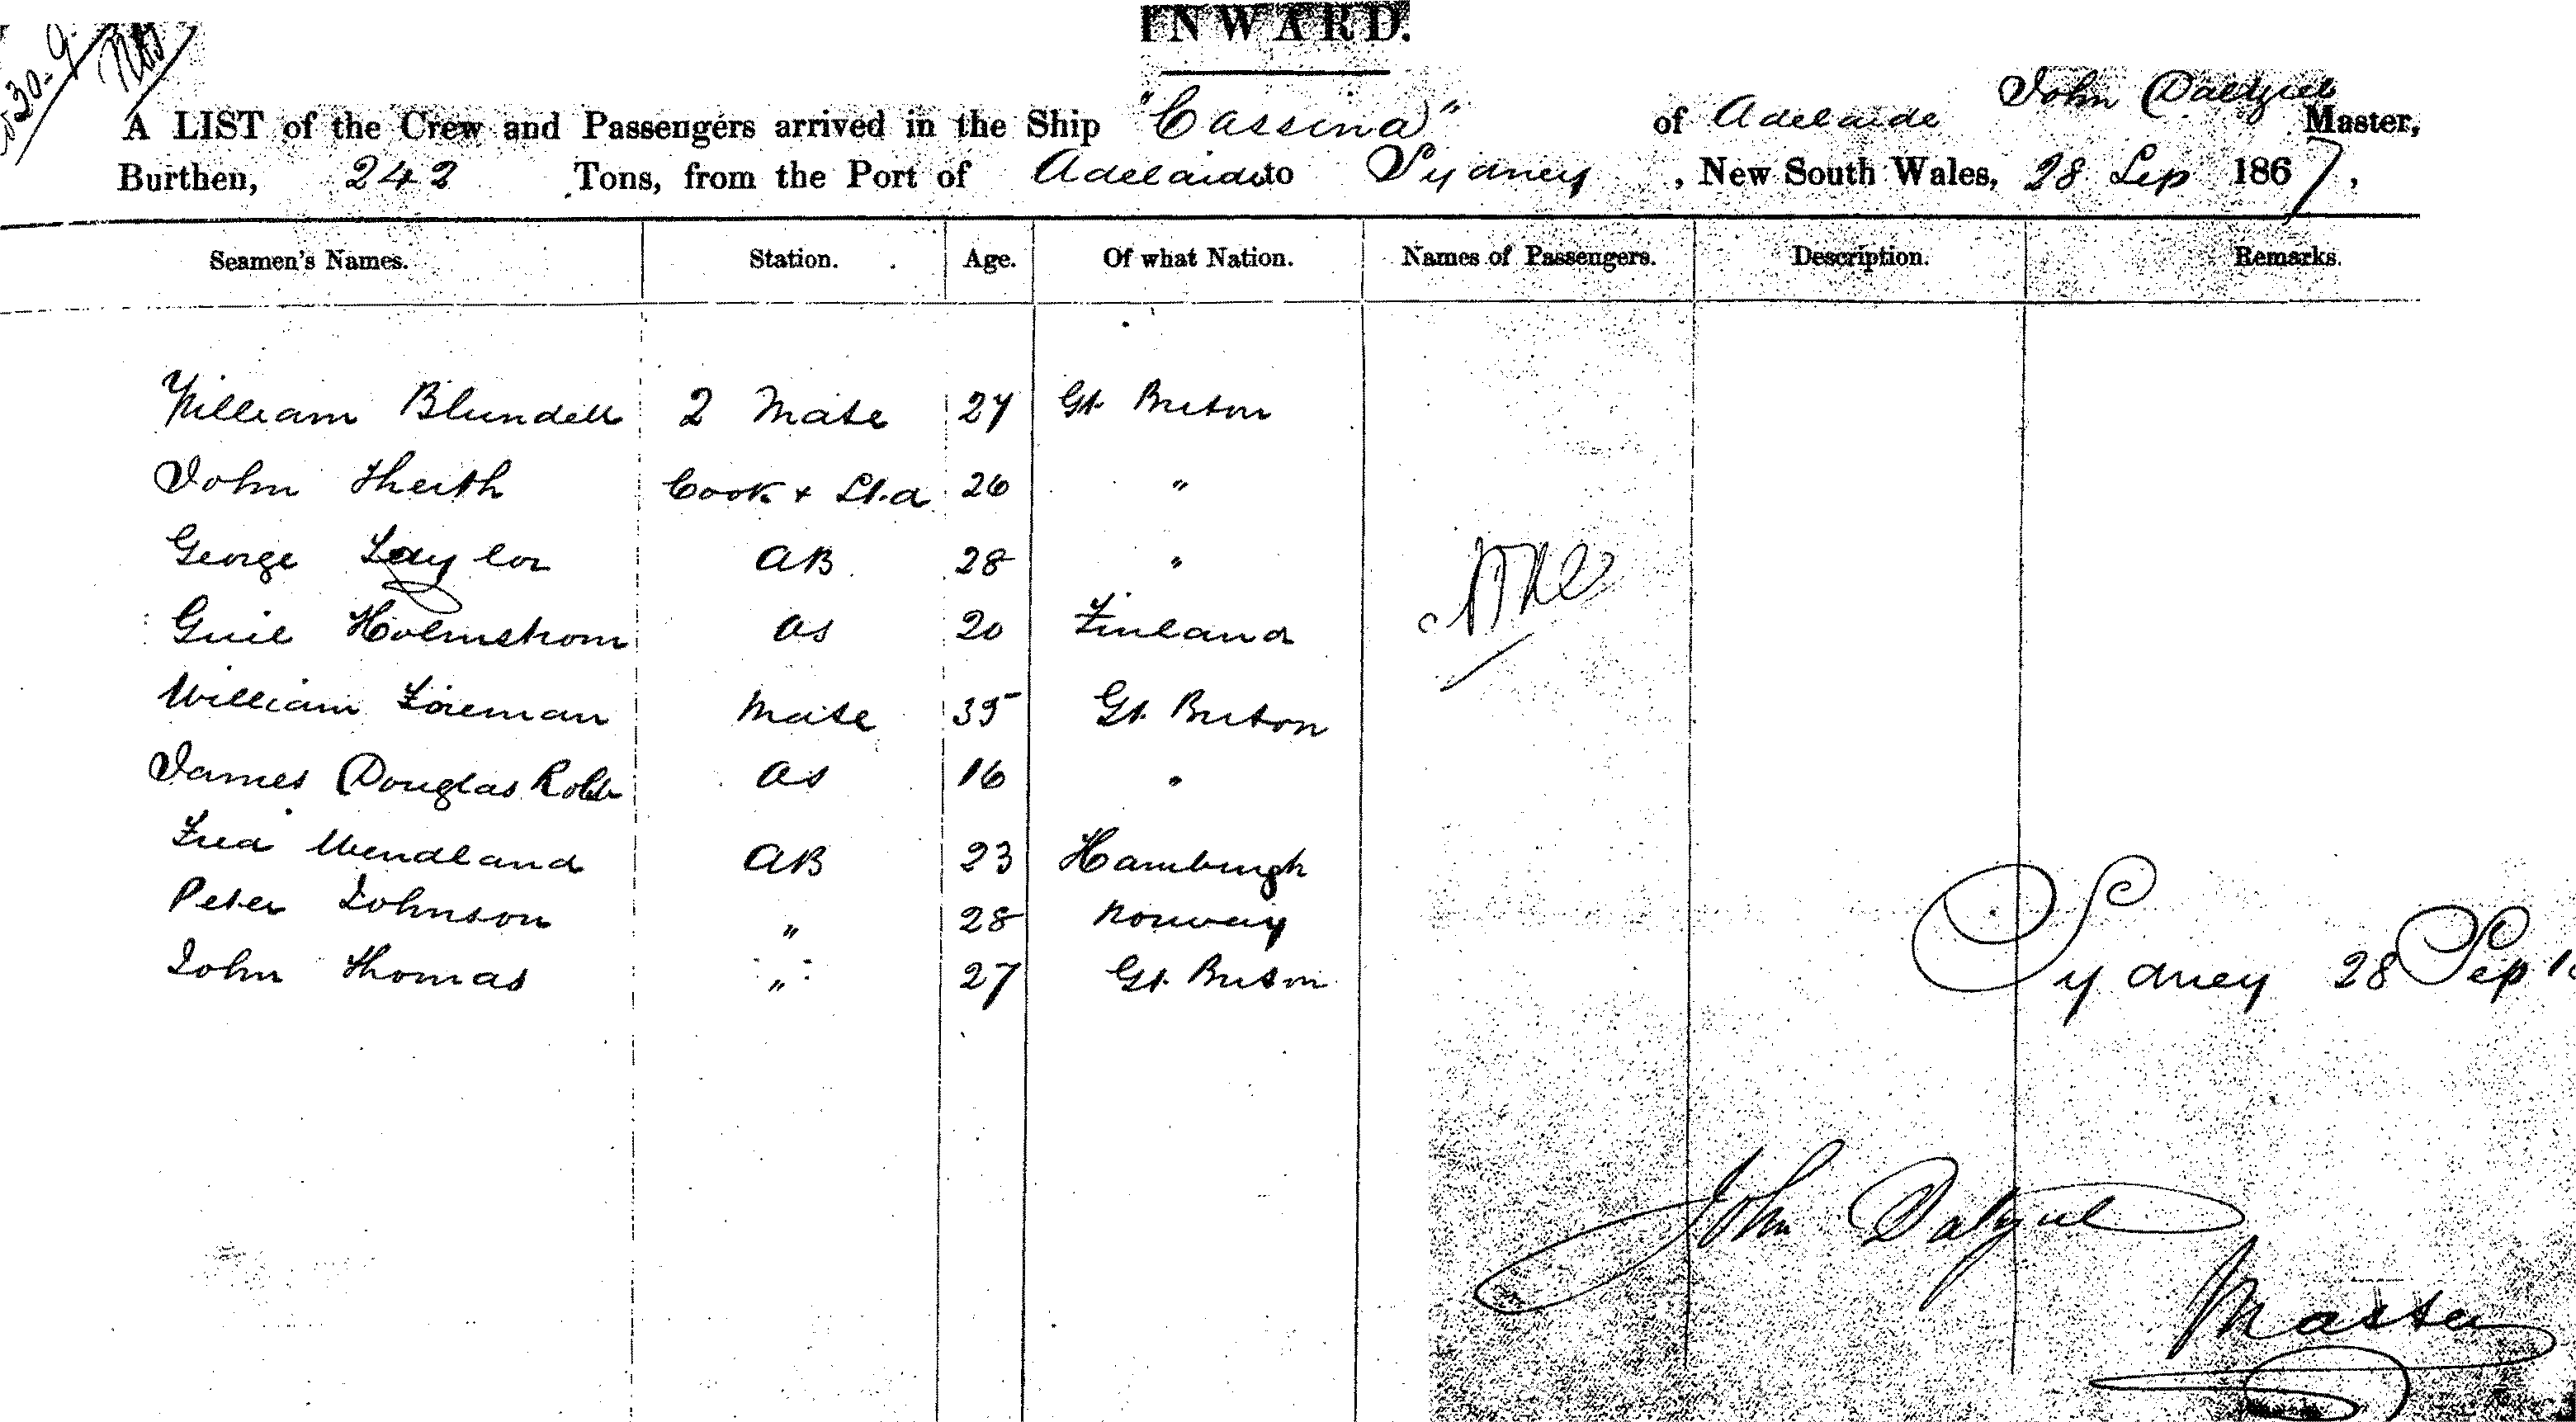 INWARD.
30-9
A LIST of the Crew and Passengers arrived in the Ship "Cassina" of Adelaide John Dalziel Master,
Burthen, 242 Tons, from the Port of Adelaide to Sydney, New South Wales, 28 Sep 1867,
Seamen's Names. Station. Age. Of what Nation. Names of Passengers. Description. Remarks.
William Blundell 2 Mate 27 Gt Briton
John Cook & St.d 26 "
George Taylor AB 28 "
Holmstrom OS 20 Finland
William Foreman Mate 35 Gt Briton
James Douglas Robb OS 16 "
Fred Wendland AB 23 Hamburgh
Peter Johnson " 28 Norway
John Thomas " 27 Gt Briton
Sydney 28 Sep
John Dalziel
Master